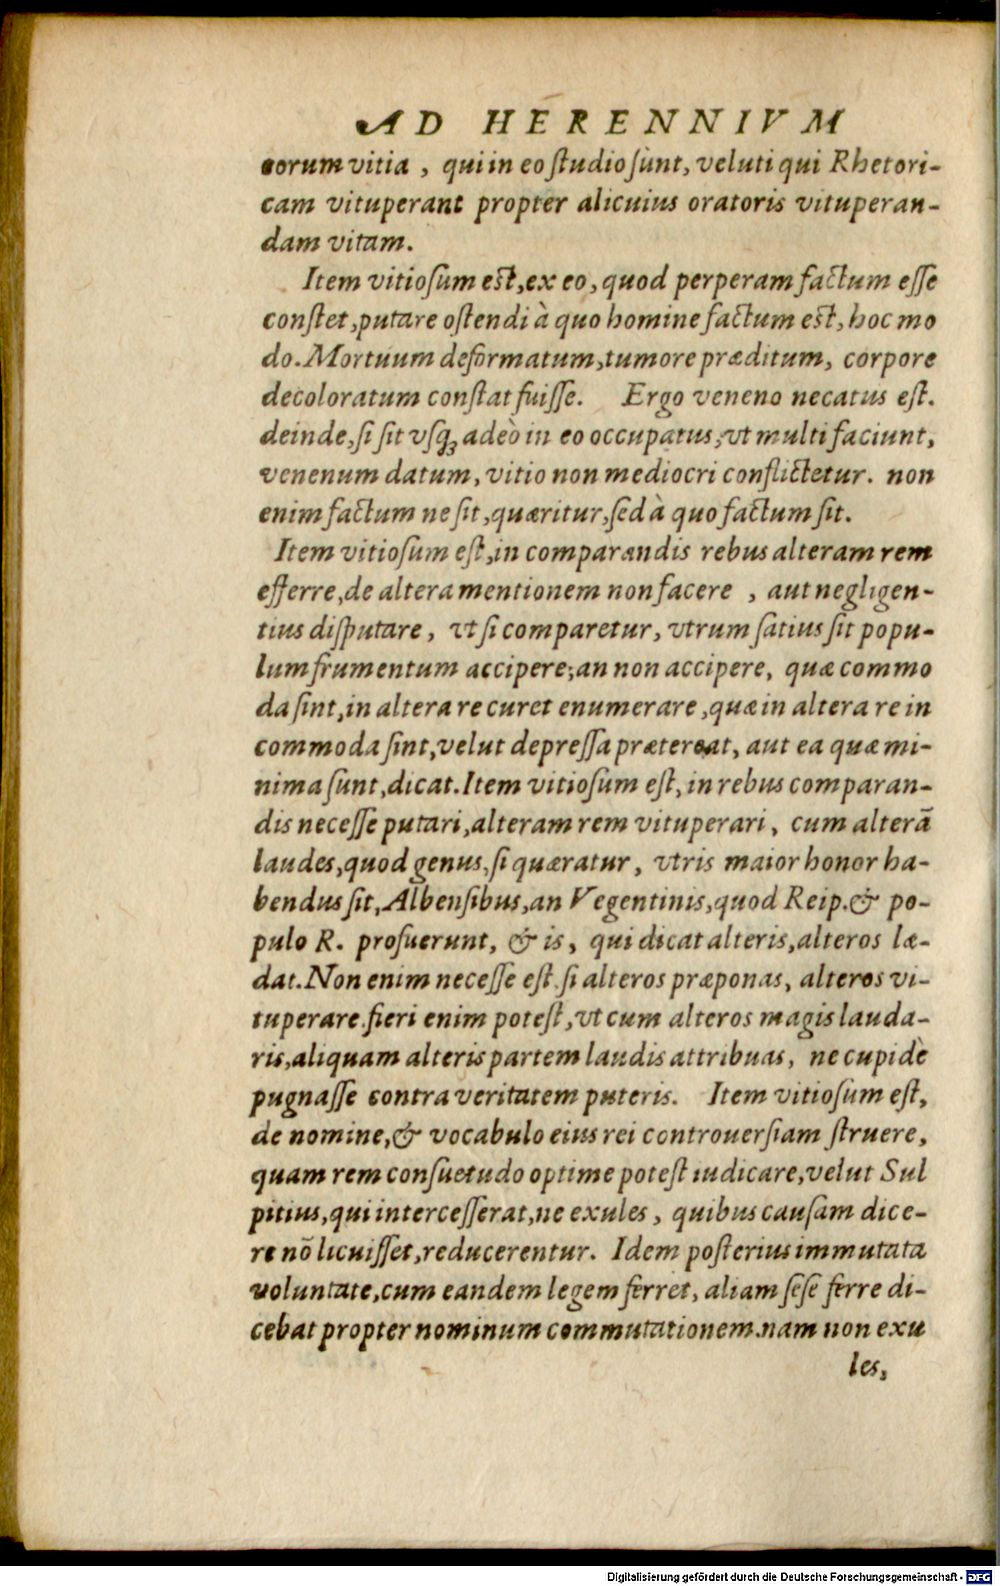 AD HERENNIVM
eorum vitia , qui in eo ſtudio ſunt, veluti qui Rhetori-
cam vituperant propter alicuius oratoris vituperan-
dam vitam.
Item vitioſum eſt, ex eo, quod perperam factum eſſe
conſtet, putare oſtendi à quo homine factum eſt, hoc mo
do. Mortuum deformatum, tumore præditum, corpore
decoloratum conſtat fuiſſe. Ergo veneno necatus eſt.
deinde, ſi ſit vſq́; adeò in eo occupatus, vt multi faciunt,
venenum datum, vitio non mediocri conflictetur. non
enim factum ne ſit, quæritur, ſed à quo factum ſit.
Item vitioſum eſt, in comparandis rebus alteram rem
efferre, de altera mentionem non facere , aut negligen-
tius diſputare, vt ſi comparetur, vtrum ſatius ſit popu-
lum frumentum accipere, an non accipere, quæ commo
da ſint, in altera re curet enumerare, quæ in altera re in
commoda ſint, velut depreſſa prætereat, aut ea quæ mi-
nima ſunt, dicat. Item vitioſum eſt, in rebus comparan-
dis neceſſe putari, alteram rem vituperari, cum alterã
laudes, quod genus, ſi quæratur, vtris maior honor ha-
bendus ſit, Albenſibus, an Vegentinis, quod Reip. & po-
pulo R. profuerunt, & is, qui dicat alteris, alteros læ-
dat. Non enim neceſſe eſt. ſi alteros præponas, alteros vi-
tuperare. fieri enim poteſt, vt cum alteros magis lauda-
ris, aliquam alteris partem laudis attribuas, ne cupidè
pugnaſſe contra veritatem puteris. Item vitioſum eſt,
de nomine, & vocabulo eius rei controuerſiam ſtruere,
quam rem conſuetudo optime poteſt iudicare, velut Sul
pitius, qui interceſſerat, ne exules, quibus cauſam dice-
re nõ licuiſſet, reducerentur. Idem poſterius immutata
voluntate, cum eandem legem ferret, aliam ſeſe ferre di-
cebat propter nominum commutationem. nam non exu
les,
Digitalisierung gefördert durch die Deutsche Forschungsgemeinschaft - DFG